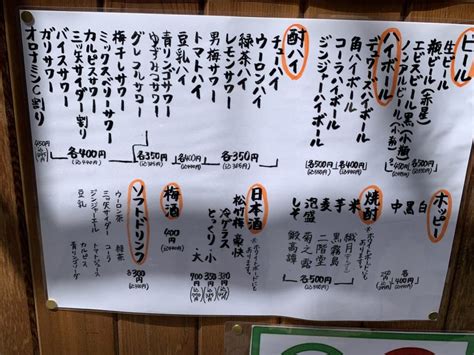 ビール
生ビール
瓶ビール(赤星)
エビスビール黒(小瓶)
ノンアルビール(小瓶)
各500円
ハイボール
デュワーズハイボール
角ハイボール
コーラハイボール
ジンジャーハイボール
各400円
各500円
酎ハイ
チューハイ
ウーロンハイ
緑茶ハイ
レモンサワー
各350円
男梅サワー
トマトハイ
豆乳ハイ
各400円
青リンゴサワー
ゆずみつサワー
グレフルサワー
各350円
梅干しサワー
ミックスベリーサワー
カルピスサワー
三ツ矢サイダー割り
バイスサワー
ガリサワー
各400円
オロナミンC割り
450円
ホッピー
白
黒
中
各400円
200円
焼酎
米
芋
麦
泡盛
しそ
黒霧島
二階堂
菊之露
鍛高譚
各500円
日本酒
松竹梅豪快
冷グラス
とっくり 小
大
320円
350円
700円
梅酒
400円
ソフトドリンク
ウーロン茶
緑茶
三ツ矢サイダー
コーラ
ジンジャーエール
トマトジュース
豆乳
カルピス
青リンゴソーダ
各300円